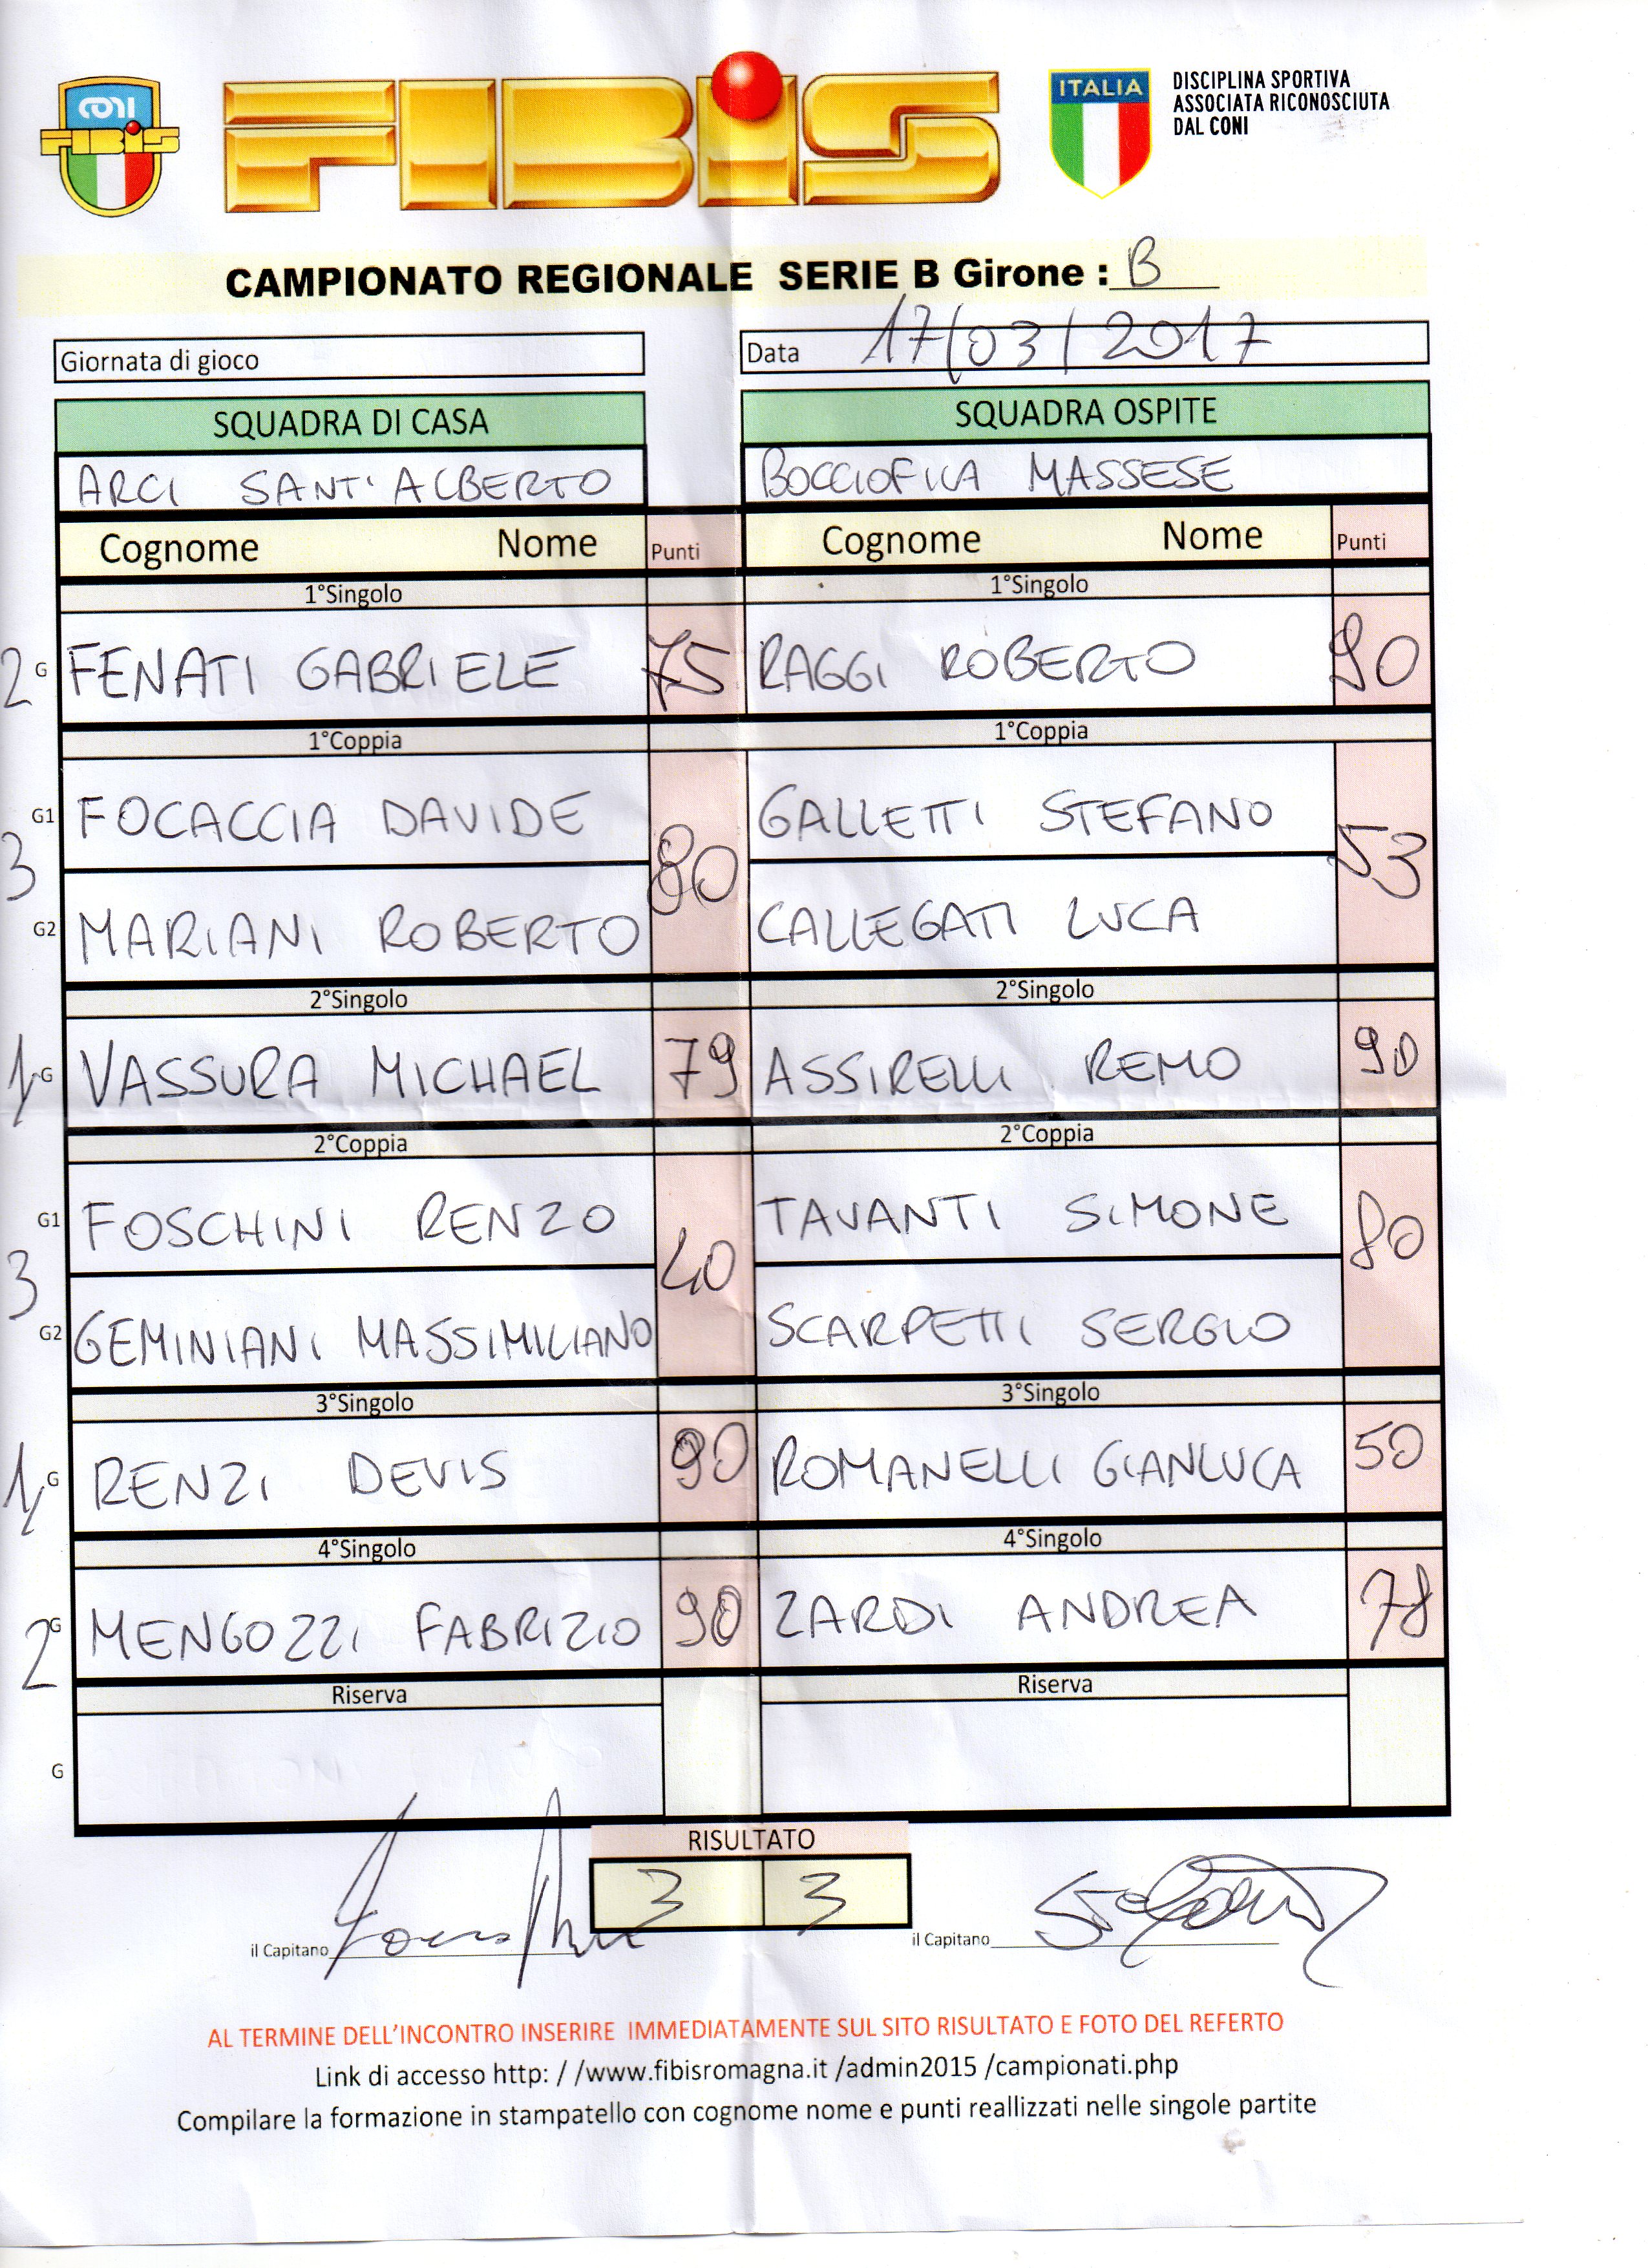 CONI
FIBiS
FIBiS
ITALIA
DISCIPLINA SPORTIVA
ASSOCIATA RICONOSCIUTA
DAL CONI
CAMPIONATO REGIONALE SERIE B Girone : B
Giornata di gioco
Data 17/03/2017
SQUADRA DI CASA SQUADRA OSPITE
ARCI SANT'ALBERTO BOCCIOFILA MASSESE
Cognome Nome Punti Cognome Nome Punti
1°Singolo 1°Singolo
2 G FENATI GABRIELE 75 RAGGI ROBERTO 90
1°Coppia 1°Coppia
G1 FOCACCIA DAVIDE GALLETTI STEFANO
3 80 53
G2 MARIANI ROBERTO CALLEGATI LUCA
2°Singolo 2°Singolo
1 G VASSURA MICHAEL 79 ASSIRELLI REMO 90
2°Coppia 2°Coppia
G1 FOSCHINI RENZO TAVANTI SIMONE
3 40 80
G2 GEMINIANI MASSIMILIANO SCARPETTI SERGIO
3°Singolo 3°Singolo
1 G RENZI DEVIS 90 ROMANELLI GIANLUCA 50
4°Singolo 4°Singolo
2 G MENGOZZI FABRIZIO 90 ZARDI ANDREA 78
Riserva Riserva
G
RISULTATO
3 3
il Capitano il Capitano
AL TERMINE DELL'INCONTRO INSERIRE IMMEDIATAMENTE SUL SITO RISULTATO E FOTO DEL REFERTO
Link di accesso http: / /www.fibisromagna.it /admin2015 /campionati.php
Compilare la formazione in stampatello con cognome nome e punti reallizzati nelle singole partite